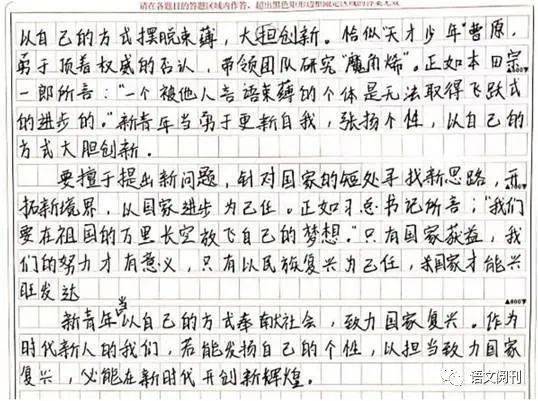 请在各题目的答题区域内作答，超出黑色矩形边框限定区域的答案无效
以自己的方式摆脱束薄，大担创新。恰似"天才少年"曹原，
勇于顶着权威的否认，带领团队研究"魔角烯"。正如本田宗
一郎所言："一个被他人言语束薄的个体是无法取得飞跃式
的进步的。"新青年当勇于更新自我，张扬个性，以自己的
方式大胆创新。
要擅于提出新问题，针对国家的短处寻找新思路，开
拓新境界，以国家进步为己任。正如习总书记所言："我们
要在祖国的万里长空放飞自己的梦想。"只有国家获益，我
们的努力才有意义，只有以民族复兴为己任，国家才能兴
旺发达
新青年当以自己的方式奉献社会，致力国家复兴。作为
时代新人的我们，若能发扬自己的个性，以担当致力国家
复兴，必能在新时代开创新辉煌。
▲600▼
▲800▼
语文阅刊